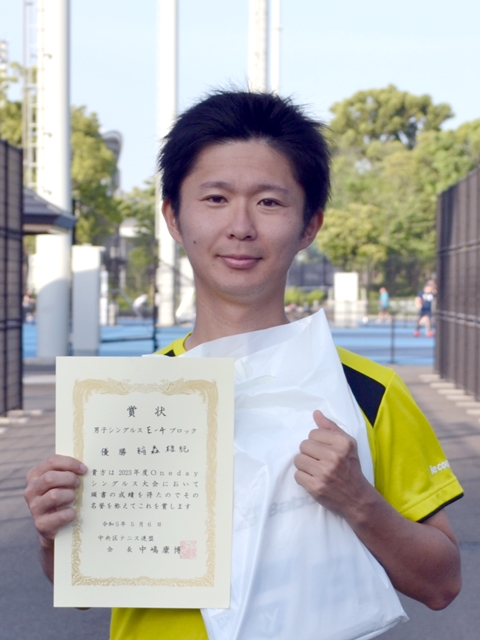 賞状
男子シングルス E-4 ブロック
優勝 稲森 諒紘
貴方は2023年度Oneday
シングルス大会において
頭書の成績を得たのでその
名誉を称えてこれを賞します
令和5年5月6日
中央区テニス連盟
会長 中嶋康博
in co
Bab